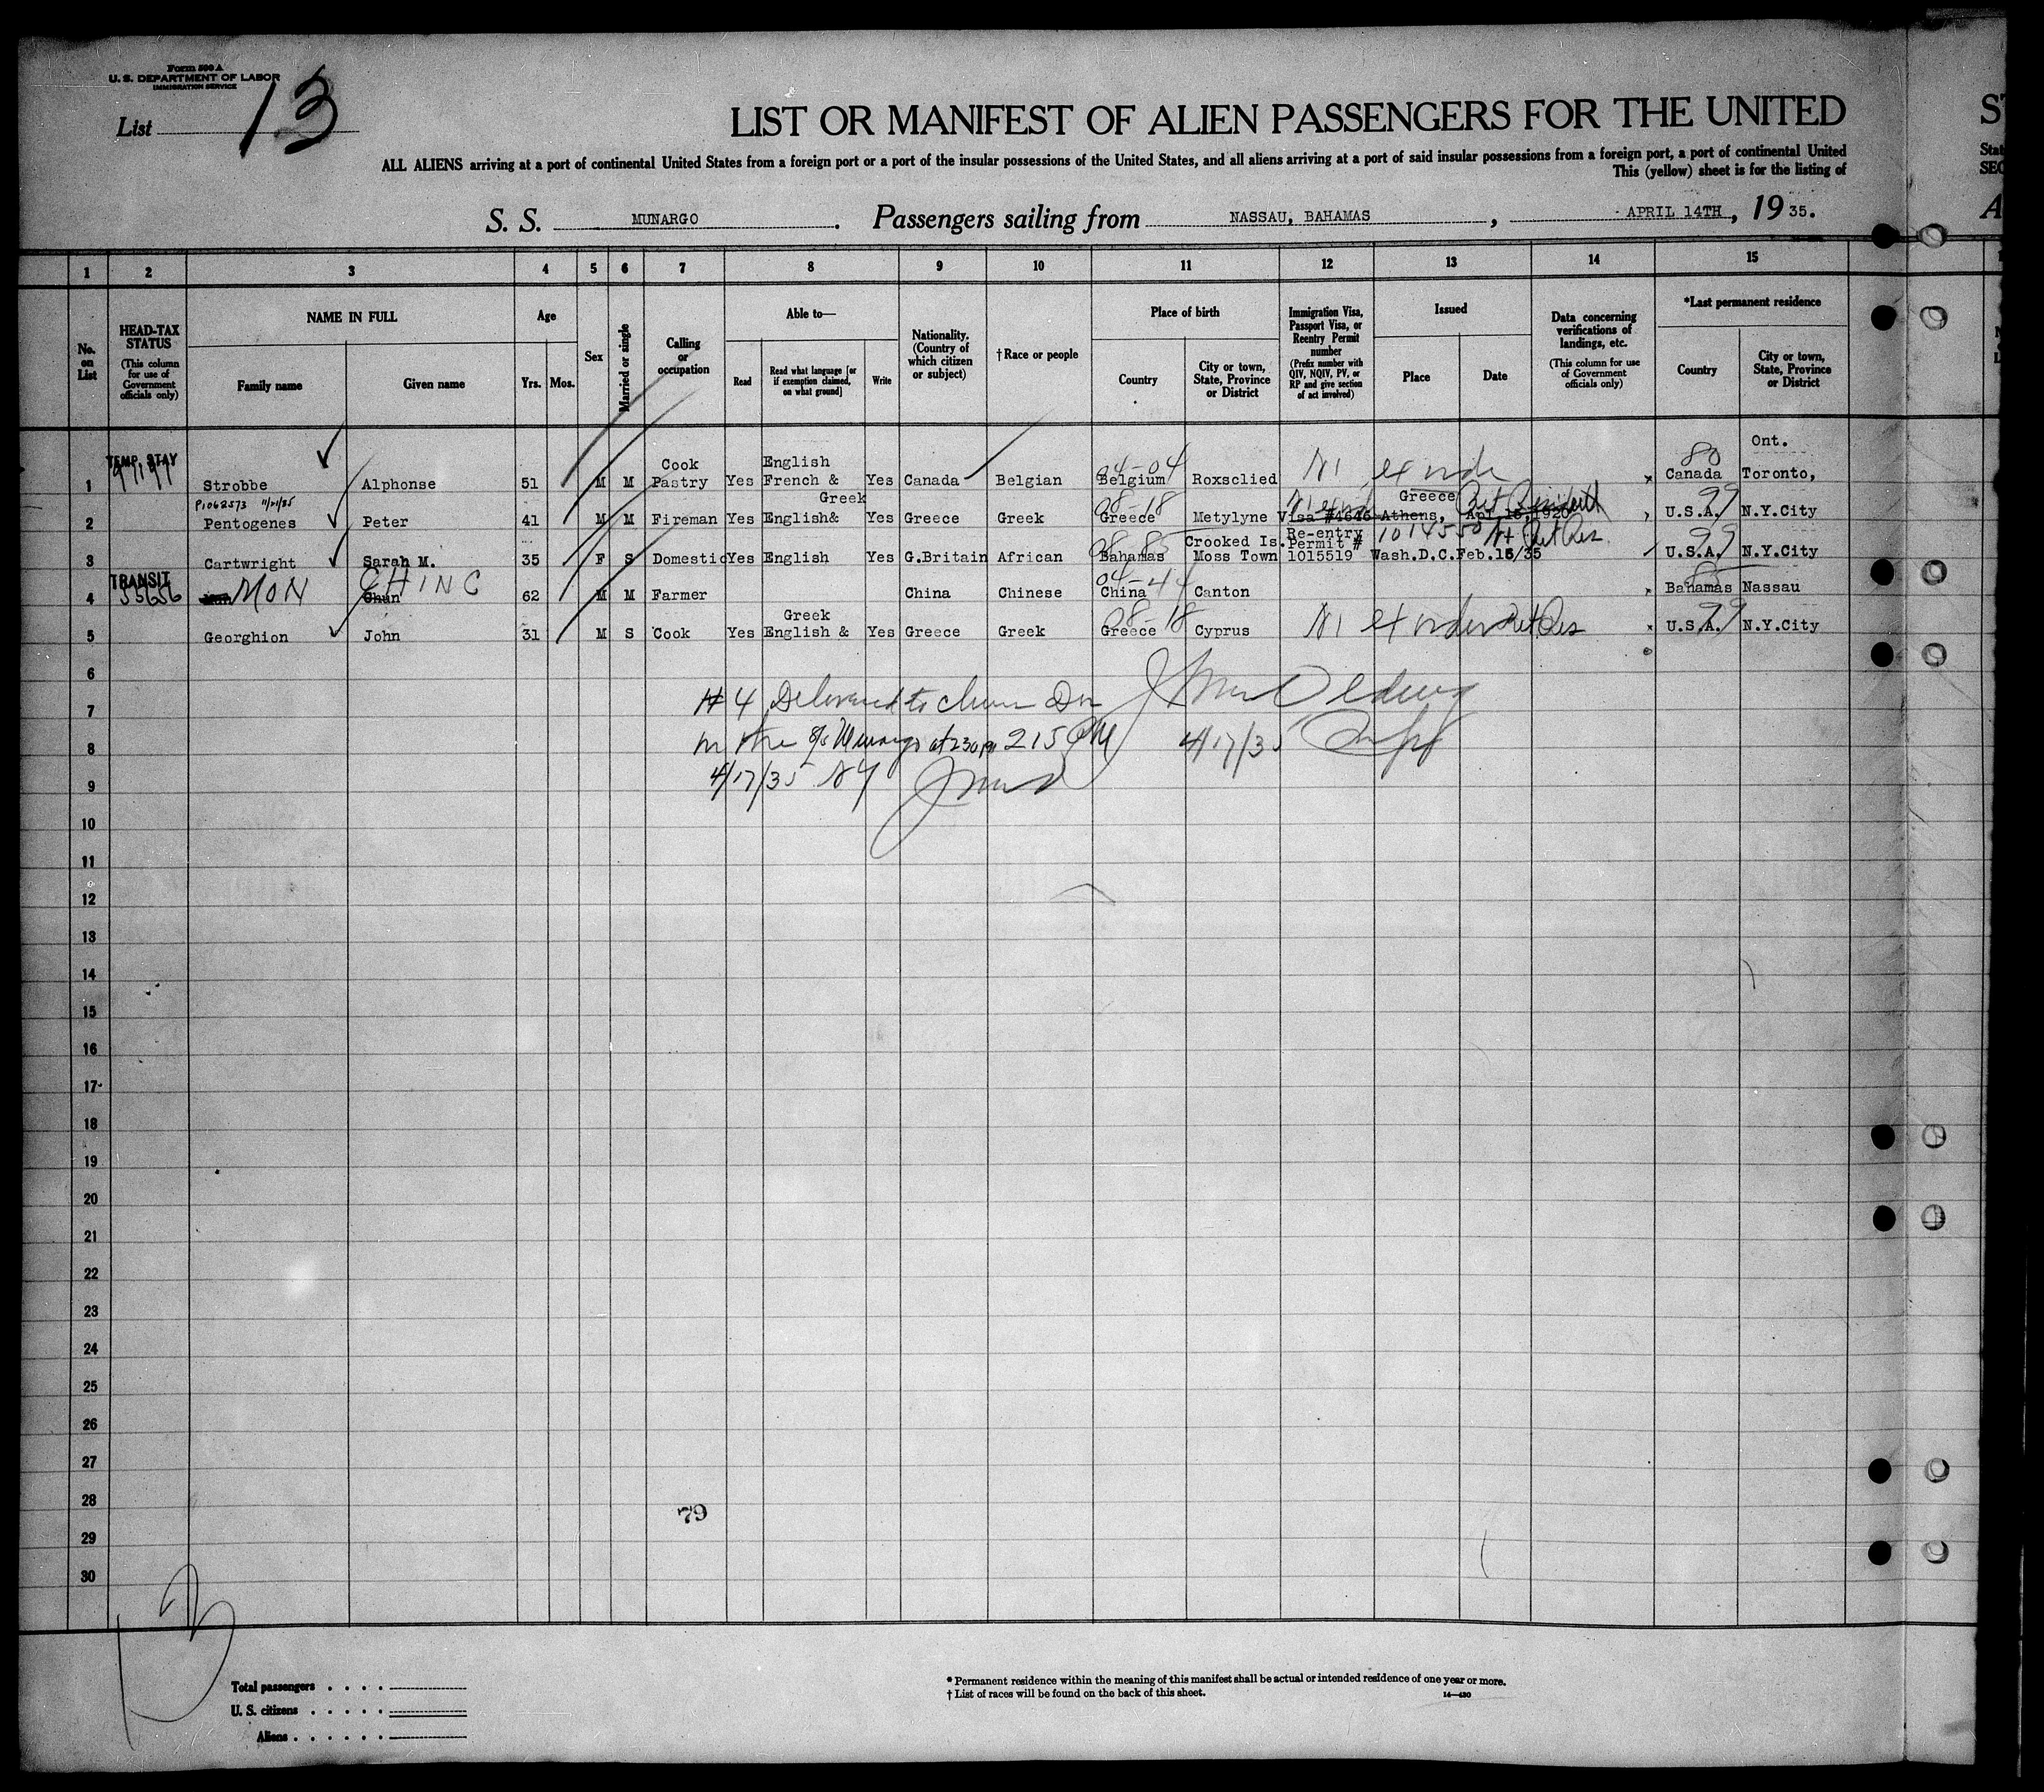 Form 500 A
U. S. DEPARTMENT OF LABOR
IMMIGRATION SERVICE
List 13
LIST OR MANIFEST OF ALIEN PASSENGERS FOR THE UNITED
ALL ALIENS arriving at a port of continental United States from a foreign port or a port of the insular possessions of the United States, and all aliens arriving at a port of said insular possessions from a foreign port, a port of continental United
This (yellow) sheet is for the listing of
S. S. MUNARGO. Passengers sailing from NASSAU, BAHAMAS, APRIL 14TH, 19 35.
1 2 3 4 5 6 7 8 9 10 11 12 13 14 15
No. on List
HEAD-TAX STATUS
(This column for use of Government officials only)
NAME IN FULL
Family name
Given name
Age
Yrs. Mos.
Sex
Married or single
Calling or occupation
Able to—
Read
Read what language [or if exemption claimed, on what ground]
Write
Nationality. (Country of which citizen or subject)
† Race or people
Place of birth
Country
City or town, State, Province or District
Immigration Visa, Passport Visa, or Reentry Permit number
(Prefix number with QIV, NQIV, PV, or RP and give section of act involved)
Issued
Place
Date
Data concerning verifications of landings, etc.
(This column for use of Government officials only)
*Last permanent residence
Country
City or town, State, Province or District
TEMP. STAY Cook English 04-04 80 Ont.
1 Strobbe Alphonse 51 M M Pastry Yes French & Yes Canada Belgian Belgium Roxsclied Canada Toronto,
P1062573 11/21/35 Greek 08-18 Greece 99
2 Pentogenes Peter 41 M M Fireman Yes English& Yes Greece Greek Greece Metylyne Visa #4646 Athens, Apl 15,1920 U.S.A. N.Y.City
08-85 Crooked Is. Re-entry Permit # 1014550 99
3 Cartwright Sarah M. 35 F S Domestic Yes English Yes G.Britain African Bahamas Moss Town 1015519 Wash.D.C. Feb.15/35 U.S.A. N.Y.City
TRANSIT 04-44 85
4 MON Chun CHING 62 M M Farmer China Chinese China Canton Bahamas Nassau
Greek 08-18 99
5 Georghion John 31 M S Cook Yes English & Yes Greece Greek Greece Cyprus U.S.A. N.Y.City
6
# 4 Delivered to
7
215 PM 4/17/35
8
4/17/35 NY
9
10
11
12
13
14
15
16
17
18
19
20
21
22
23
24
25
26
27
28
79
29
30
13
Total passengers
U. S. citizens
Aliens
* Permanent residence within the meaning of this manifest shall be actual or intended residence of one year or more.
† List of races will be found on the back of this sheet.
14—430